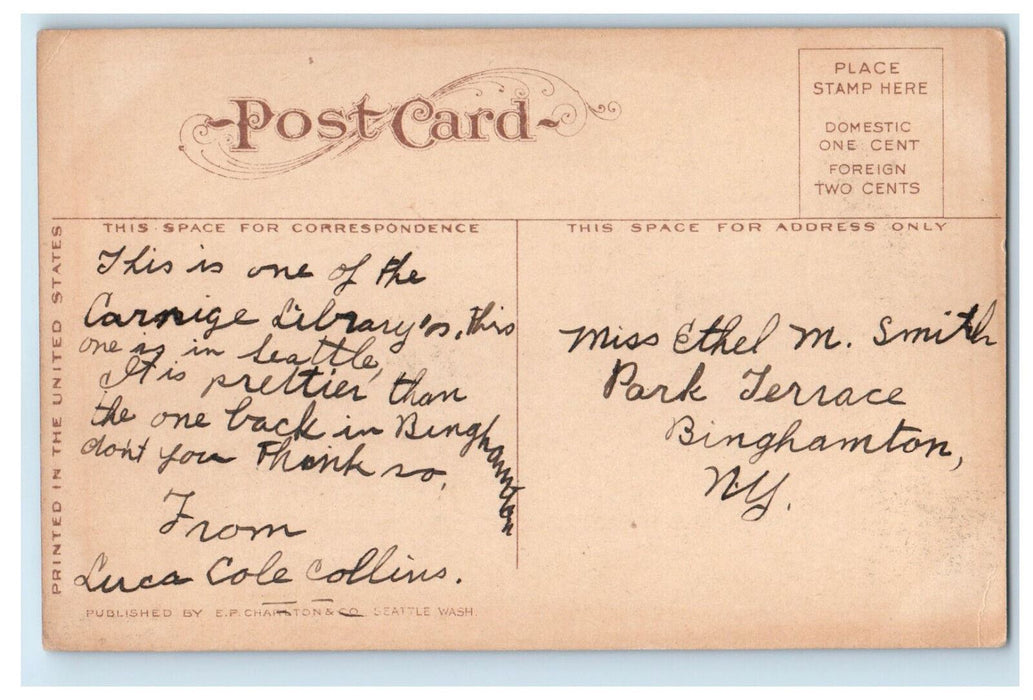 Post Card
PLACE
STAMP HERE
DOMESTIC
ONE CENT
FOREIGN
TWO CENTS
PRINTED IN THE UNITED STATES
THIS SPACE FOR CORRESPONDENCE
This is one of the
Carnige Library's, this
one is in Seattle,
It is prettier than
the one back in Binghamton
don't you think so,
From
Luca Cole Collins.
PUBLISHED BY E.P. CHARLTON & CO. SEATTLE WASH.
THIS SPACE FOR ADDRESS ONLY
Miss Ethel M. Smith
Park Terrace
Binghamton,
N.Y.